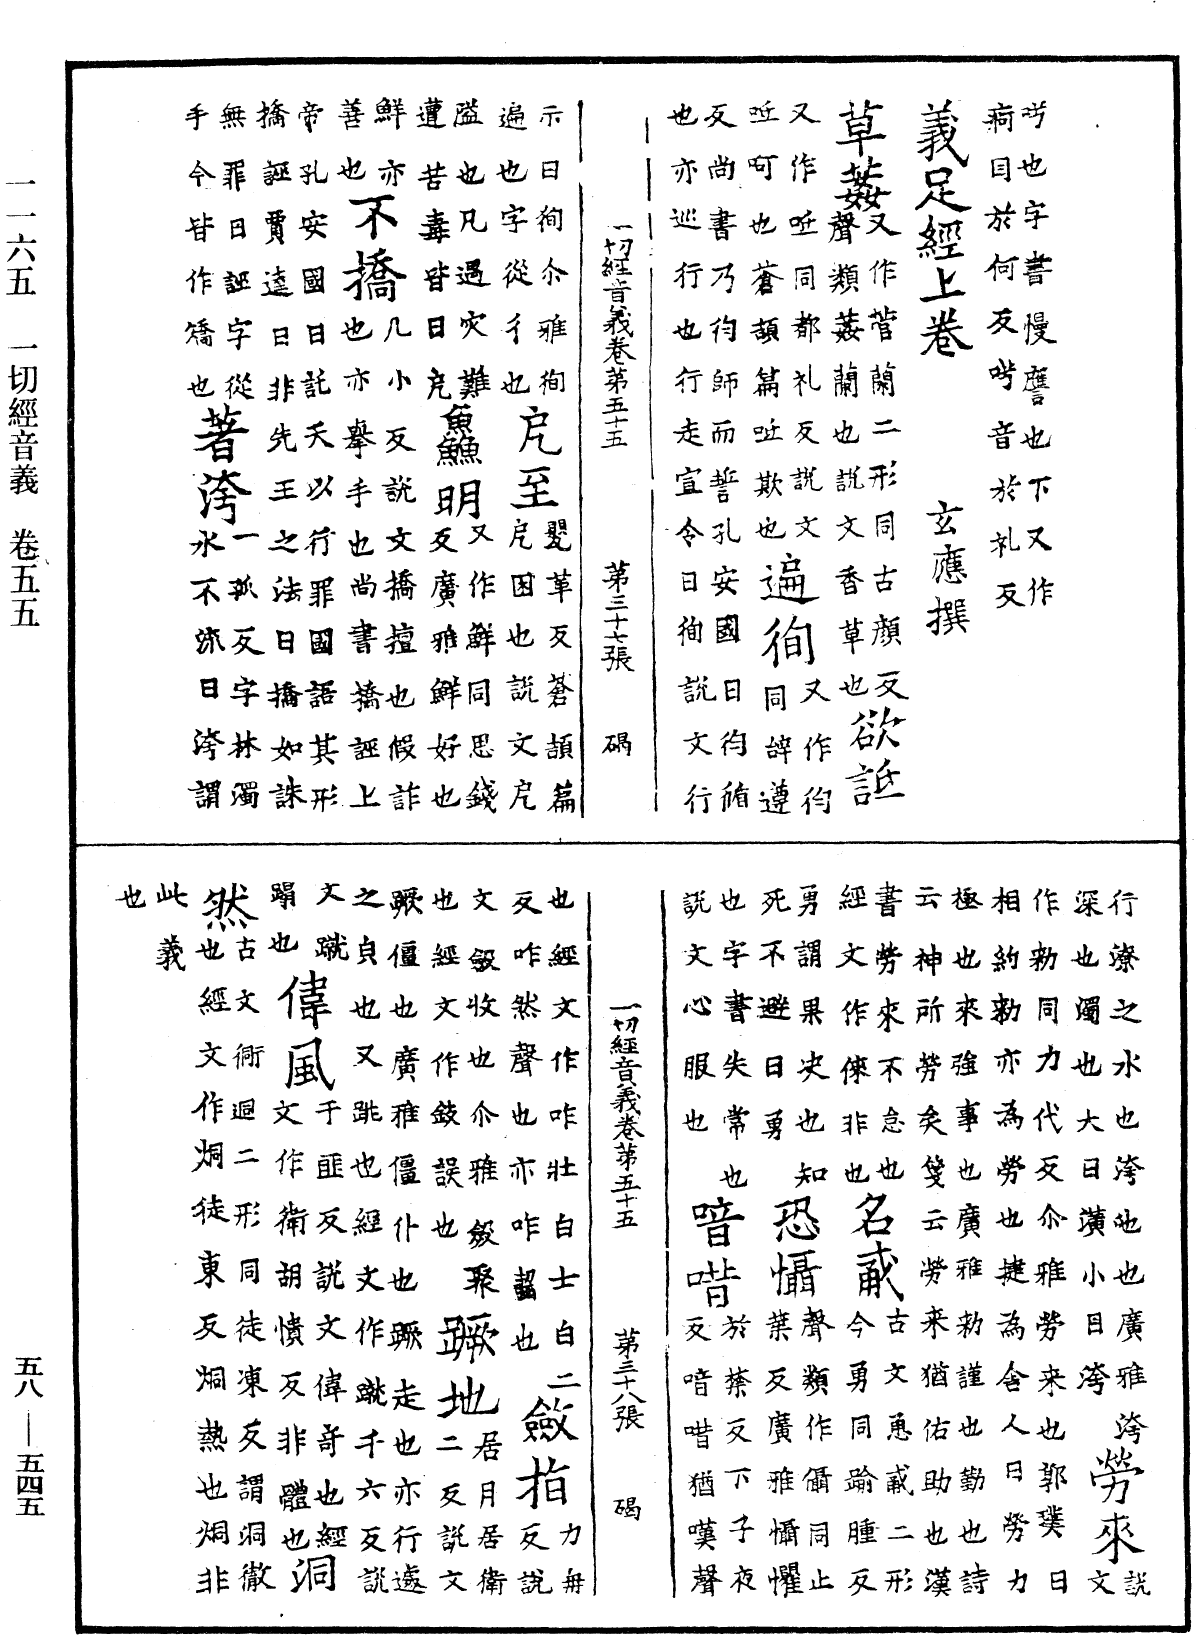 一一六五　一切經音義　卷五五
五八—五四五
㖒也字書慢譍也下又作
痾目於何反㖒音於礼反
義足經上卷　玄應撰
草葌
又作菅蘭二形同古顏反
聲類葌蘭也說文香草也
欲詆
又作呧同都礼反說文
呧呵也蒼頡篇呧欺也
遍徇
又作徇同辞遵
反尚書乃徇師而誓孔安國曰徇循
也亦巡行也行走宣令曰徇說文行
一切經音義卷第五十五　第三十七張　碣
示曰徇尒雅徇
遍也字從彳也
戹至
瞾革反蒼頡篇
戹困也說文戹
隘也凡遇灾難
遭苦毒皆曰戹
鱻明
又作鮮同思錢
反廣雅鮮好也
鮮亦
善也
不撟
几小反說文撟擅也假詐
也亦舉手也尚書撟誣上
帝孔安國曰託天以行罪國語其形
撟誣賈逵曰非先王之法曰撟如誅
無罪曰誣字從
手今皆作矯也
著洿
一孤反字林濁
水不流曰洿謂
行潦之水也洿池也廣雅洿
深也濁也大曰潢小曰洿
勞來
說文
作勑同力代反尒雅勞来也郭璞曰
相約勑亦為勞也揵為舍人曰勞力
極也來強事也廣雅勑謹也勤也詩
云神所勞矣箋云勞来猶佑助也漢
書勞來不怠也
經文作倈非也
名勈
古文恿勈二形
今勇同踰腫反
勇謂果决也知
死不避曰勇
恐懾
聲類作㒤同止
葉反廣雅懾懼
也字書失常也
說文心服也
喑唶
於禁反下子夜
反喑唶猶嘆聲
一切經音義卷第五十五　第三十八張　碣
也經文作咋壮白士白二
反咋然聲也亦咋齧也
斂指
力冉
反說
文斂收也尒雅斂聚
也經文作㪘誤也
蹶地
居月居衛
二反說文
蹶僵也廣雅僵仆也蹶走也亦行遽
之貞也又跳也經文作䠞千六反說
文蹴
蹋也
偉風
于匪反說文偉奇也經
文作衛胡憒反非體也
洞然
古文衕迵二形同徒凍反謂洞徹
也經文作烔徒東反烔熱也烔非
此義
也